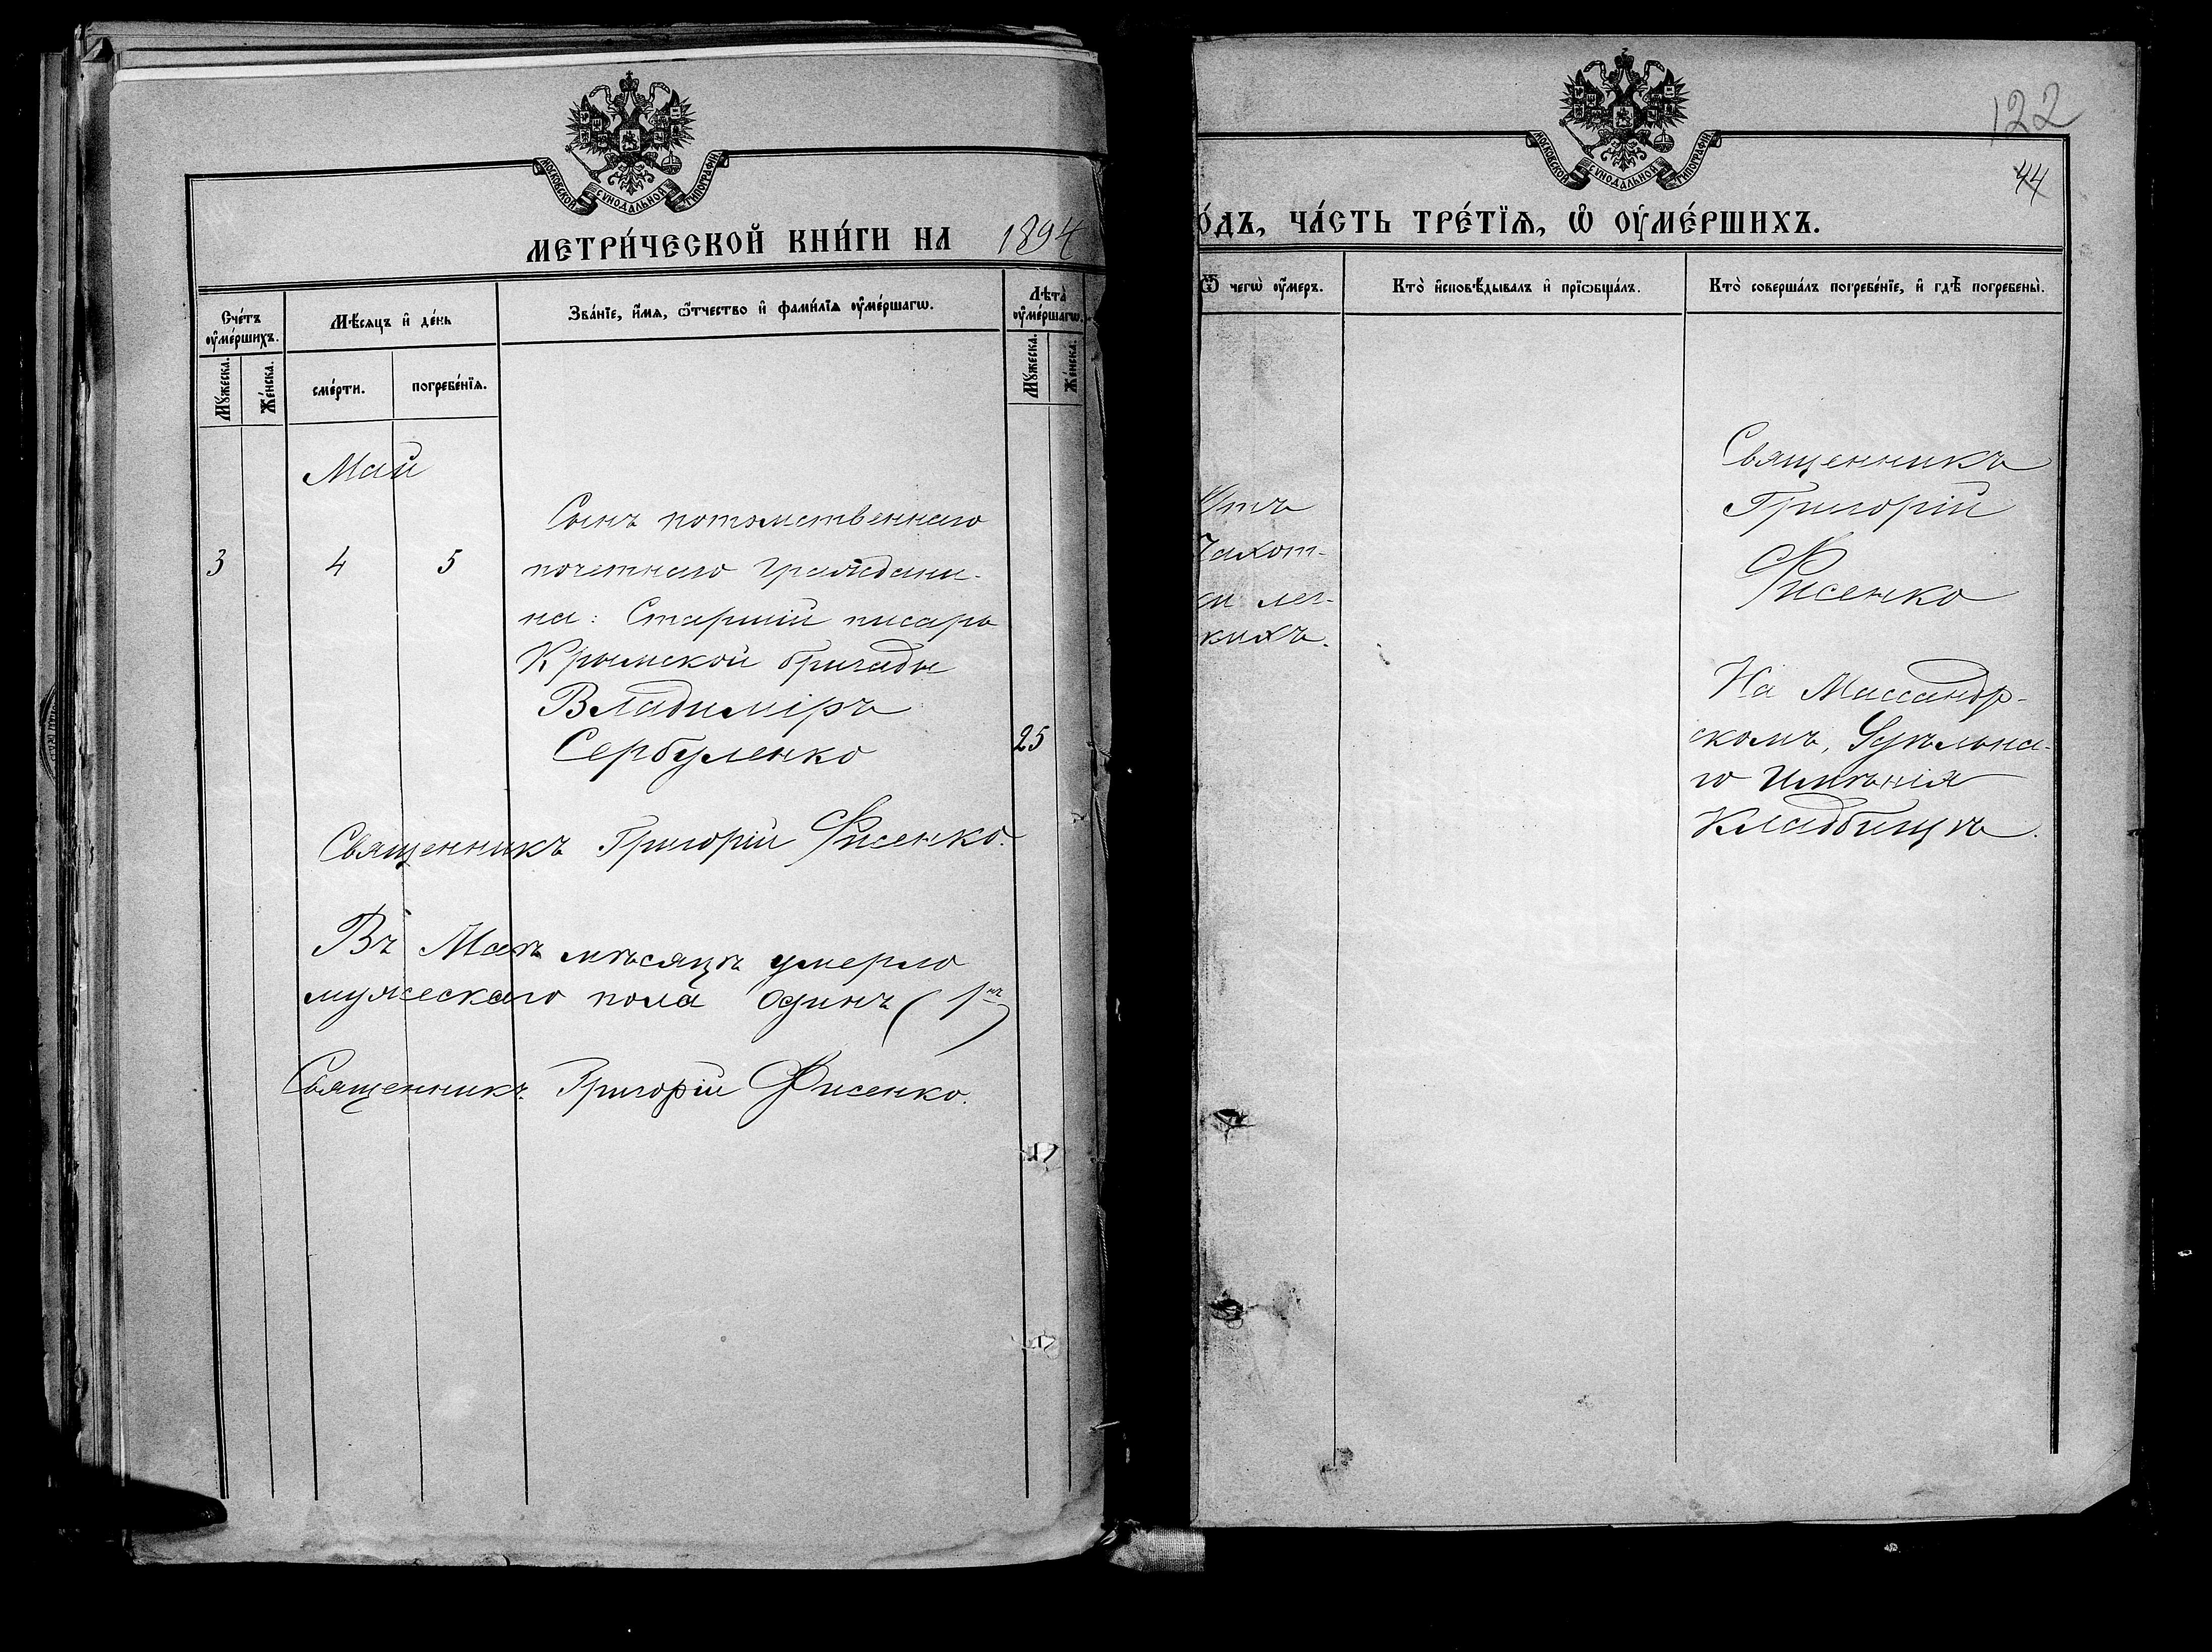 МОСКОВСКОЙ СУНОДАЛЬНОЙ ТИПОГРАФІИ.
МЕТРИ́ЧЕСКОЙ КНИ́ГИ НА 1894
Сче́тъ ѹ҆ме́ршихъ.
Мѣ́сяцъ и҆ де́нь
Зва́нїе, и҆́мѧ, ѻ҆́тчество и҆ фами́лїѧ ѹ҆ме́ршагѡ.
Лѣта̀ ѹ҆ме́ршагѡ.
Мꙋ́жеска.
Же́нска.
сме́рти.
погребе́нїѧ.
Мꙋ́жеска.
Же́нска.
Май
Сынъ потомственнаго
3 4 5 почетнаго граждани-
на: Старшій писарь
Крымской бригады
Владиміръ
Сербуленко 25
Священникъ Григорій Фисенко.
Въ Маѣ мѣсяцѣ умерло
мужескаго пола одинъ (1нъ)
Священникъ Григорій Фисенко.
122
44
МОСКОВСКОЙ СУНОДАЛЬНОЙ ТИПОГРАФІИ.
О́ДЪ, ЧА́СТЬ ТРЕ́ТЇѦ, Ѡ҆ ОУ҆МЕ́РШИХЪ.
Ѿ чегѡ̀ ѹ҆́меръ.
Кто̀ и҆сповѣ́дывалъ и҆ прїѡбща́лъ.
Кто̀ соверша́лъ погребе́нїе, и҆ гдѣ̀ погребены̀.
Отъ
Чахот-
ки лег-
кихъ.
Священникъ
Григорій
Фисенко
На Массандр-
скомъ, Удѣльна-
го Имѣнія
Кладбищѣ.